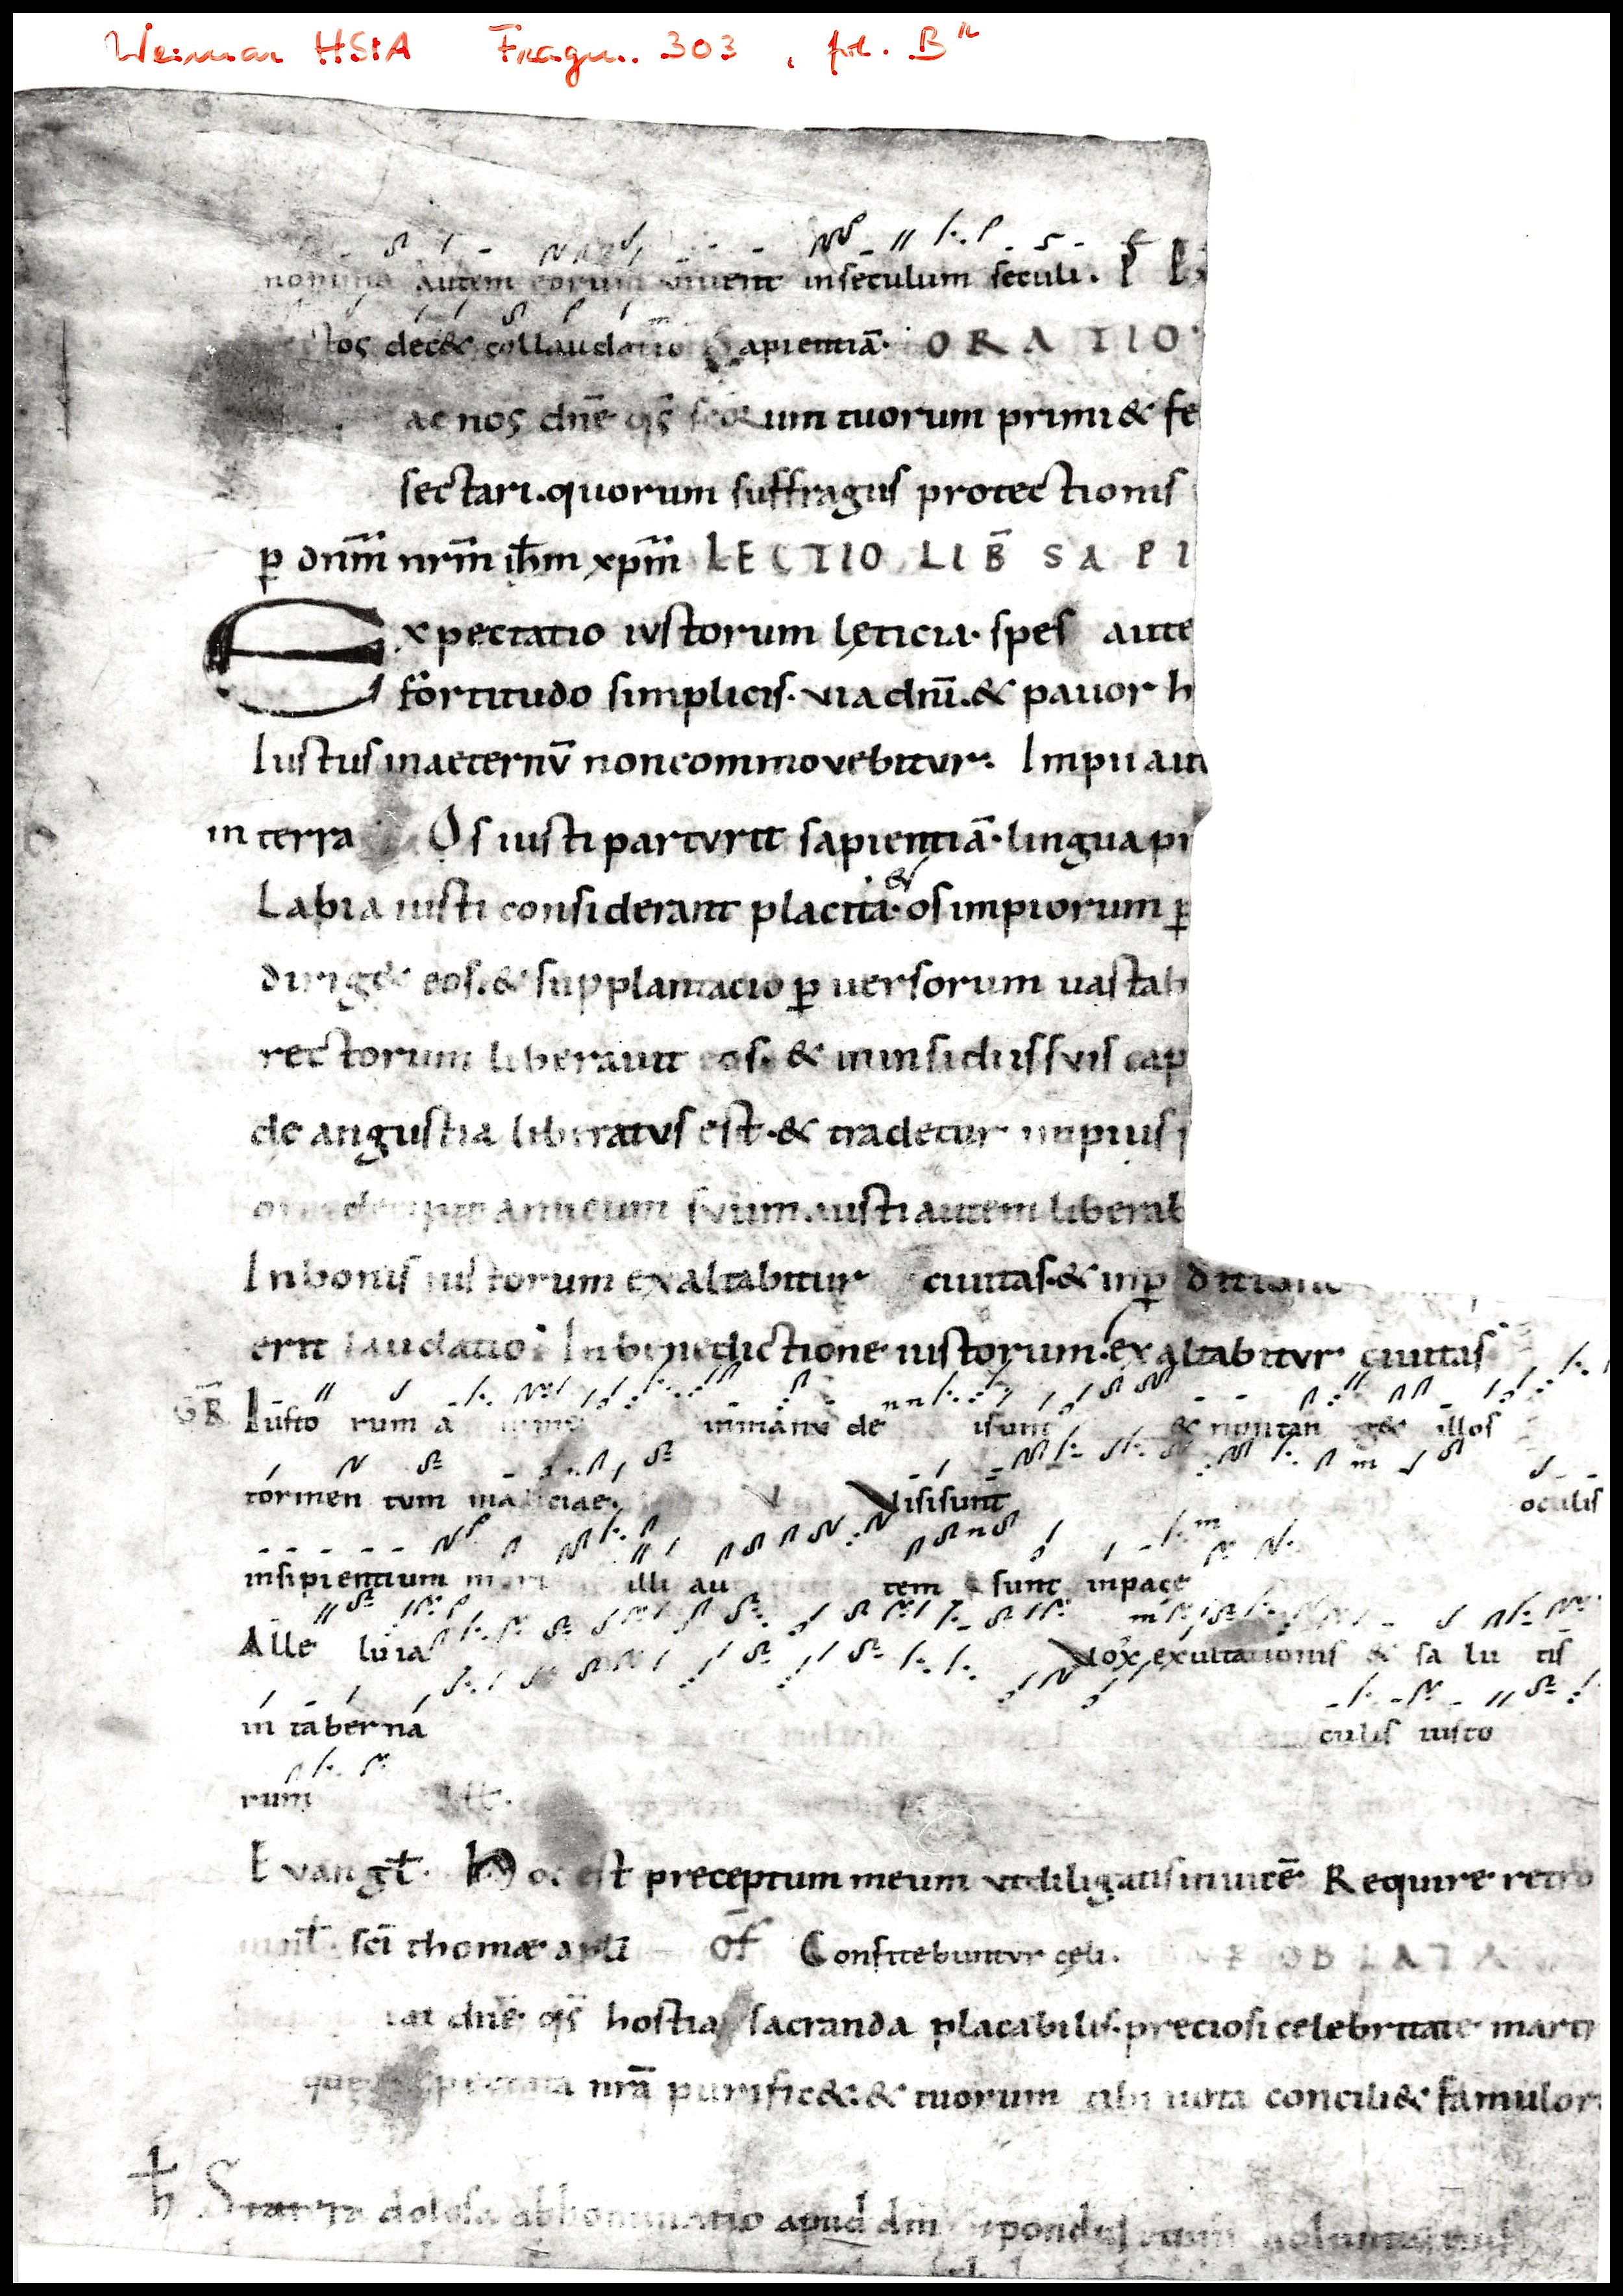 Weimar HStA Fragm. 303, fol. Br
nomina autem eorum vivent inseculum seculi. Ps
stos dec& collaudatio Sapientiā. ORATIO
ac nos dnē qs̄ um tuorum primi & fe
sectari. quorum suffragiis protectionis
ꝑ dnm̄ nrm̄ ihm̄ xpm̄ LECTIO LIB̄ SAPI
Expectatio iustorum lęticia. spes aute
fortitudo simplicis. via dnī. & pauor h
Iustus inaeternū noncommovebitur. Impii aut
in terra Os iusti parturit sapientiā. lingua pr
Labia iusti considerant placita. & os impiorum ꝑ
dirig& eos. & supplantacio ꝑ uersorum uastab
rectorum liberauit eos. & ininsidiis suis cap
de angustia liberatus est. & tradetur impius
amicum suum. iusti autem liberab
Inbonis iustorum exaltabitur ciuitas. & inꝑ ditione
erit laudatio. Inbenedictione iustorum. exaltabitur ciuitas
GR̄ Iusto rum a nime inmanu de isunt & nontan g& illos
tormen tum maliciae. V Visisunt oculis
insipientium mori illi au tem sunt inpace
Alle luia Vox exultationis & sa lu tis
in taberna culis iusto
rum All.
Evangl̄. Hoc est preceptum meum utdiligatis inuicē. Require retro
sc̄i thomæ apl̄i of̄ Confitebuntur cęli. OBLATA
at dnē qs̄ hostia sacranda placabilis. preciosi celebritate marti
que nrā purific&. & tuorum tibi uota concili& famulor
Statera dolosa abhominatio apud dm̄ & pondus